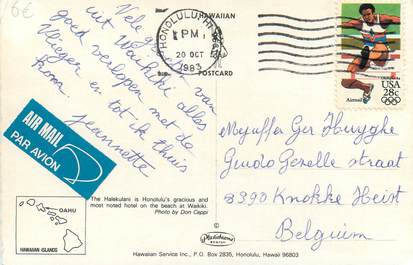 6€
Vele groeten van
uit Waikiki alles
goed verlopen met de
Vlieger en tot ik thuis
kom
Jeannette
HAWAIIAN
POSTCARD
HONOLULU, HI
PM
20 OCT
1983
USA
28c
Airmail
AIR MAIL
PAR AVION
Mejuffer Ger Huyghe
Guido Gezelle straat
8390 Knokke Heist
Belgium
The Halekulani is Honolulu's gracious and
most noted hotel on the beach at Waikiki.
Photo by Don Ceppi
OAHU
HAWAIIAN ISLANDS
Plastichrome
Hawaiian Service Inc., P.O. Box 2835, Honolulu, Hawaii 96803